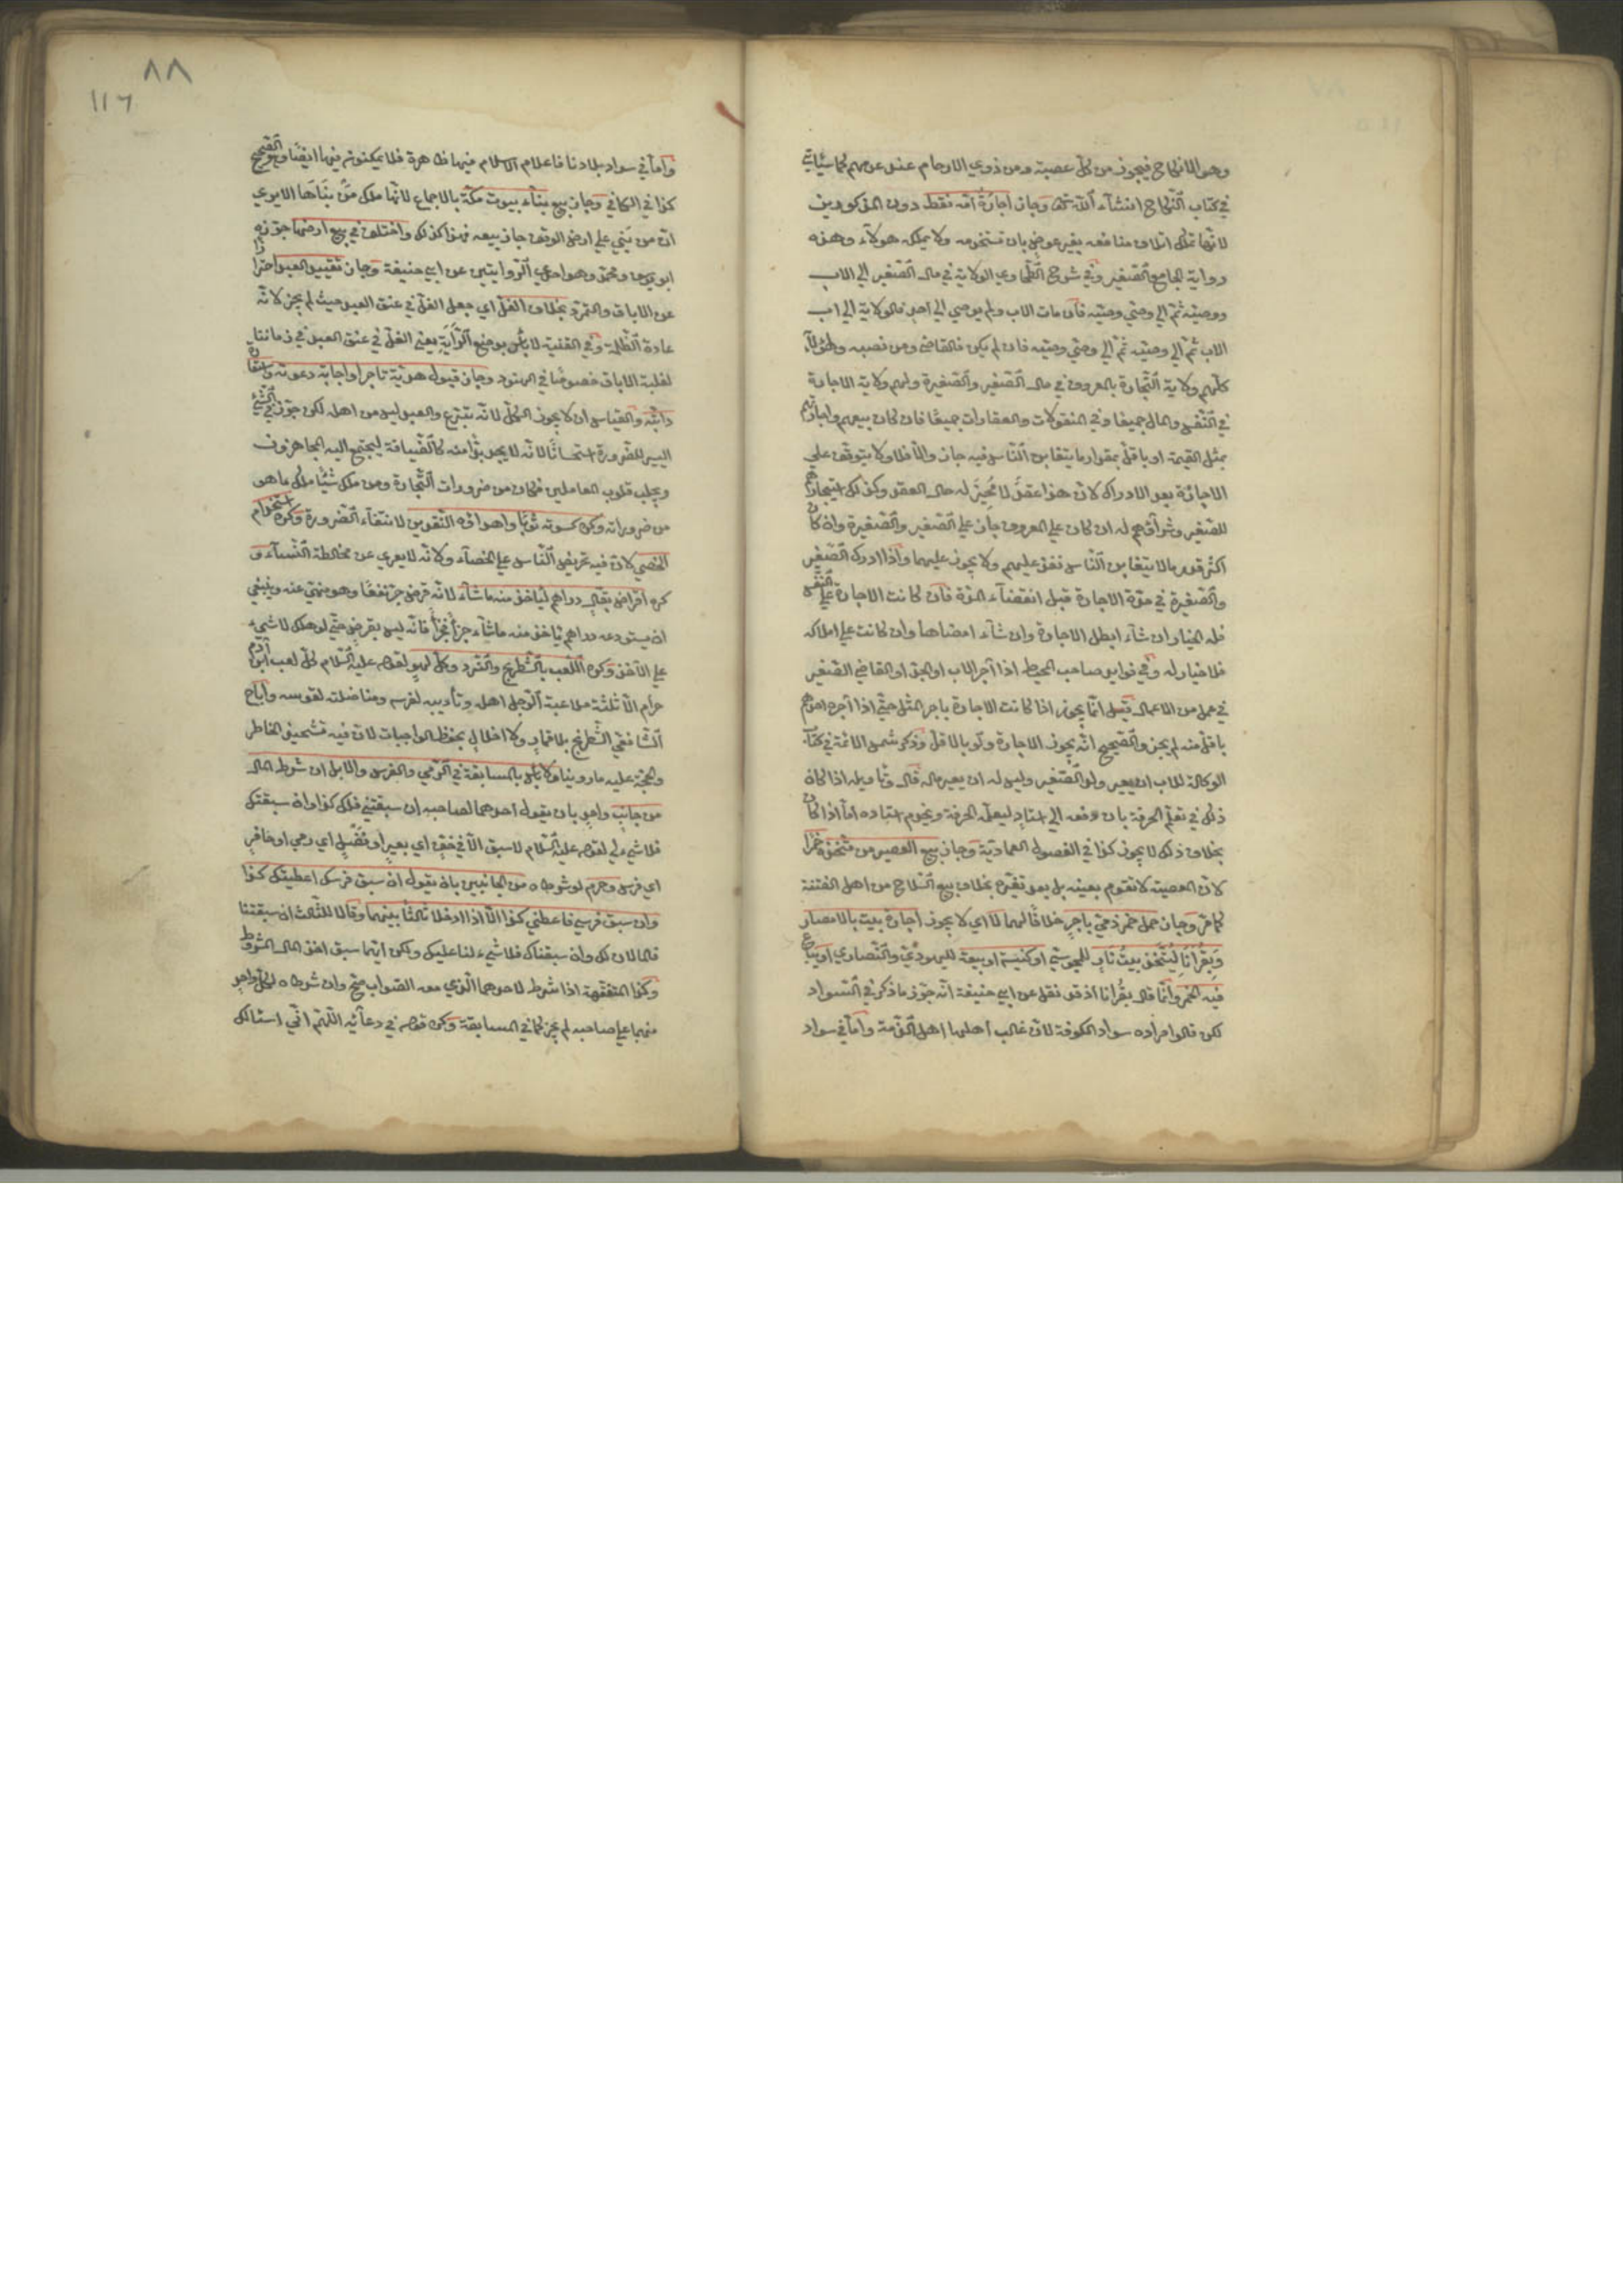 وهو الانكاح فيجوز من كل عصبة ومن ذوي الارحام عند عدمهم كما سيأتي
في كتاب النكاح انشآء الله تعالى وجاز اجارة امه فقط دون المذكورين
لانها تملك اتلاف منافعه بغير عوض بان تستخدمه ولا يملكه هولآء وهذه
رواية الجامع الصغير وفي شرح الطحاوي الولاية في مال الصغير الي الاب
ووصيته ثم الي وصي وصيه فان مات الاب ولم يوصي الي احد فالولاية الي اب
الاب ثم الي وصيه ثم الي وصي وصيه فان لم يكن فالقاضي ومن نصبه ولهؤلآء
كلهم ولاية التجارة بالمعروف في مال الصغير والصغيرة ولهم ولاية الاجارة
في النفس والمال جميعا وفي المنقولات والعقارات جميعا فان كان بيعهم واجارتهم
بمثل القيمة او باقل بمقدار ما يتغابن الناس فيه جاز والا فلا ولا يتوقف علي
الاجازة بعد الادراك لان هذا عقد لا مجيز له حال العقد وكذلك استيجارهم
للصغير وشراؤهم له ان كان علي المعروف جاز علي الصغير والصغيرة وان كان
اكثر قدر ما لا يتغابن الناس نفذ عليهم ولا يجوز عليهما واذا ادرك الصغير
والصغيرة في مدة الاجارة قبل انقضآء المدة فان كانت الاجارة علي النفس
فله الخيار ان شآء ابطل الاجارة وان شآء امضاها وان كانت علي املاكه
فلا خيار له وفي فوايد صاحب المحيط اذا آجر الاب او الجد او القاضي الصغير
في عمل من الاعمال قيل انما يجوز اذا كانت الاجارة باجر المثل حتي اذا آجره احدهم
باقل منه لم يجز والصحيح انه يجوز الاجارة ولو بالاقل وذكر شمس الائمة في كتاب
الوكالة للاب ان يعير ولده الصغير وليس له ان يعير ماله قال وتاويله اذا كان
ذلك في تعلم الحرفة بان دفعه الي استاد ليعلمه الحرفة ويخدم استاده اما اذا كان
بخلاف ذلك لا يجوز كذا في الفصول العمادية وجاز بيع العصير من متخذه خمرا
لان المعصية لا تقوم بعينه بل بعد تغيره بخلاف بيع السلاح من اهل الفتنة
كما مر وجاز حمل خمر ذمي باجر خلافا لهما لا اي لا يجوز اجارة بيت بالامصار
وبقرانا ليتخذ بيت نار للمجوسي او كنيسة او بيعة لليهودي والنصاري او يباع
فيه الخمر وانما قال بقرانا اذ قد نقل عن ابي حنيفة انه جوز ما ذكر في السواد
لكن قالوا مراده سواد الكوفة لان غالب اهلها اهل الذمة واما في سواد
٨٨
١١٦
واما في سواد بلادنا فاعلام الاسلام فيها ظاهرة فلا يمكنون فيها ايضا وهو الصحيح
كذا في الكافي وجاز بيع بنآء بيوت مكة بالاجماع لانها ملك من بناها الا يري
ان من بني علي ارض الوقف جاز بيعه فهذا كذلك واختلف في بيع ارضها جوزه
ابو يوسف ومحمد وهو احدي الروايتين عن ابي حنيفة وجاز تقييد العبد احترازا
عن الاباق والتمرد بخلاف الغل اي جعل الغل في عنق العبد حيث لم يجز لانه
عادة الظلمة وفي القنية لا بأس بوضع الراية يعني الغل في عنق العبد في زماننا
لغلبة الاباق خصوصا في الهنود وجاز قبول هدية تاجرا واجابة دعوته واستعارة
دابته والقياس ان لا يجوز الكل لانه تبرع والعبد ليس من اهله لكن جوز في الشيء
اليسير للضرورة استحسانا لانه لا يجد بدا منه كالضيافة ليجتمع اليه المجاهزون
ويجلب قلوب العاملين فكان من ضرورات التجارة ومن ملك شيئا ملك ما هو
من ضروراته وكره كسوته ثوبا واهداؤه النقدين لانتفآء الضرورة وكره استخدام
الخصي لان فيه تحريض الناس علي الخصآء ولانه لا يعري عن مخالطة النسآء و
كره اقراض بقال دراهم لياخذ منه ما شآء لانه قرض جر نفعا وهو منهي عنه وينبغي
ان يستودعه دراهم ثم ياخذ منه ما شآء جزأ فجزأ فانه ليس بقرض حتي لو هلك لا شيء
علي الآخذ وكره اللعب بالشطرنج والنرد وكل لهو لقوله عليه السلام كل لعب ابن آدم
حرام الا ثلثة ملاعبة الرجل اهله وتأديبه لفرسه ومناضلته لقوسه واباح
الشافعي الشطرنج بلا قمار ولا اخلال بحفظ الواجبات لان فيه تشحيذ الخاطر
والحجة عليه ما روينا ولا بأس بالمسابقة في الرمي والفرس والابل ان شرط المال
من جانب واحد بان يقول احدهما لصاحبه ان سبقتني فلك كذا وان سبقتك
فلا شيء لي لقوله عليه السلام لا سبق الا في خف اي بعير او نصل اي رمي او حافر
اي فرس وحرم لو شرطاه من الجانبين بان يقول ان سبق فرسك اعطيتك كذا
وان سبق فرسي فاعطني كذا الا اذا ادخلا ثالثا بينهما وقالا للثالث ان سبقتنا
فالمالان لك وان سبقناك فلا شيء لنا عليك ولكن ايهما سبق اخذ المال المشروط
وكذا المتفقهة اذا شرط لاحدهما الذي معه الصواب صح وان شرطاه لكل واحد
منهما علي صاحبه لم يجز كما في المسابقة وكره قوله في دعآئه اللهم اني اسئالك